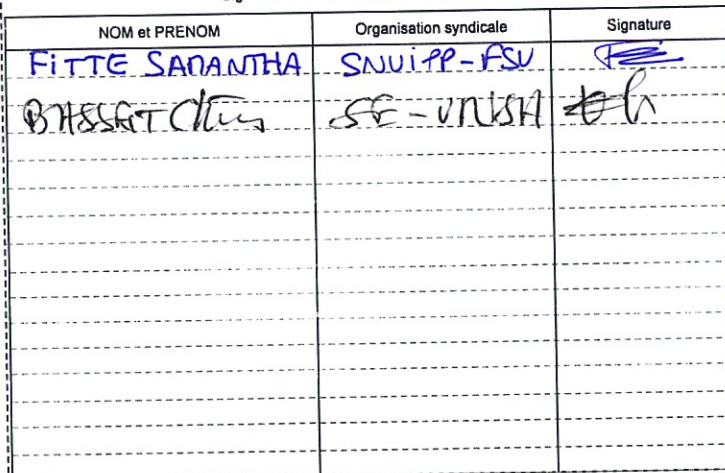 NOM et PRENOM Organisation syndicale Signature
FITTE SAMANTHA SNUiPP-FSU
BASSET SE-UNSA